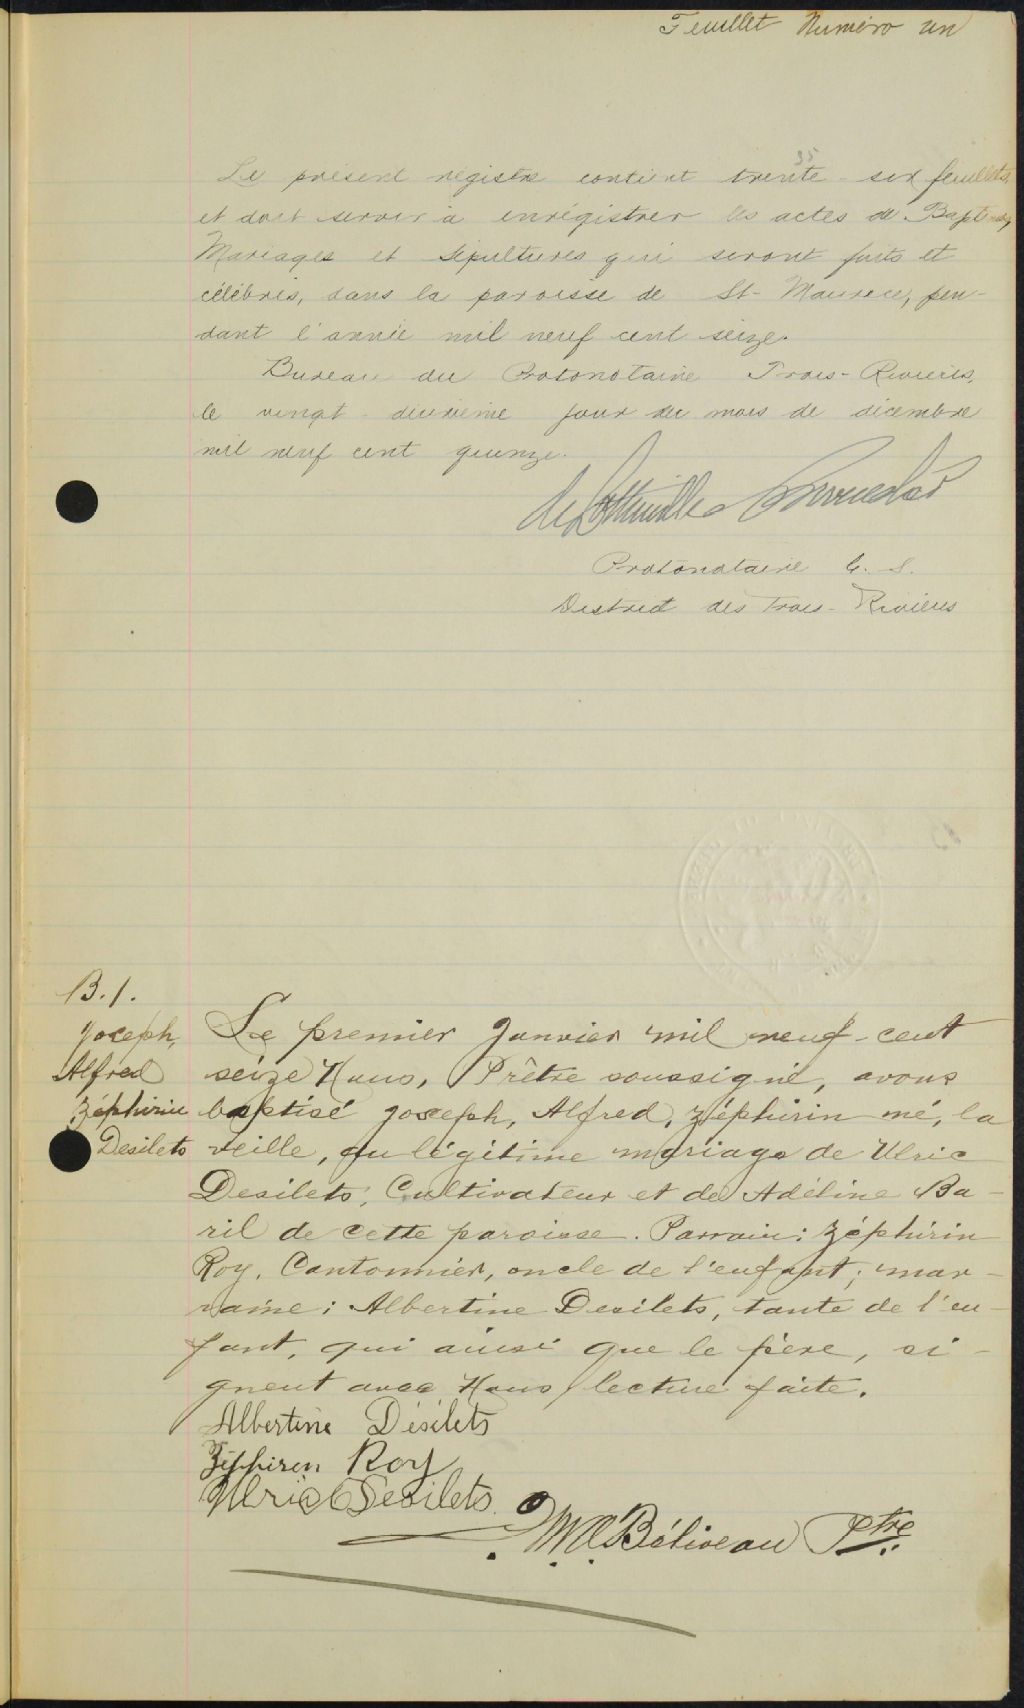 Feuillet Numéro un
35
Le présent régistre contient trente-six feuillets,
et doit servir à enrégistrer les actes de Baptêmes,
Mariages et Sépultures qui seront faits et
célébrés, dans la paroisse de St-Maurice, pen-
dant l'année mil neuf cent seize.
Bureau du Protonotaire Trois-Rivières,
le vingt-deuxième jour du mois de décembre
mil neuf cent quinze.
Protonotaire C. S.
District des Trois-Rivières
B.1.
Joseph,
Alfred
Zéphirin
Desilets
Le premier Janvier mil neuf-cent
seize Nous, Prêtre soussigné, avons
baptisé Joseph, Alfred, Zéphirin né, la
veille, du légitime mariage de Ulric
Desilets, Cultivateur et de Adéline Ba-
ril de cette paroisse. Parrain: Zéphirin
Roy, Cantonnier, oncle de l'enfant; mar-
raine: Albertine Desilets, tante de l'en-
fant, qui ainsi que le père, si-
gnent avec Nous lecture faite.
Albertine Désilets
Zéphiren Roy
Ulric Desilets
Béliveau Ptre.